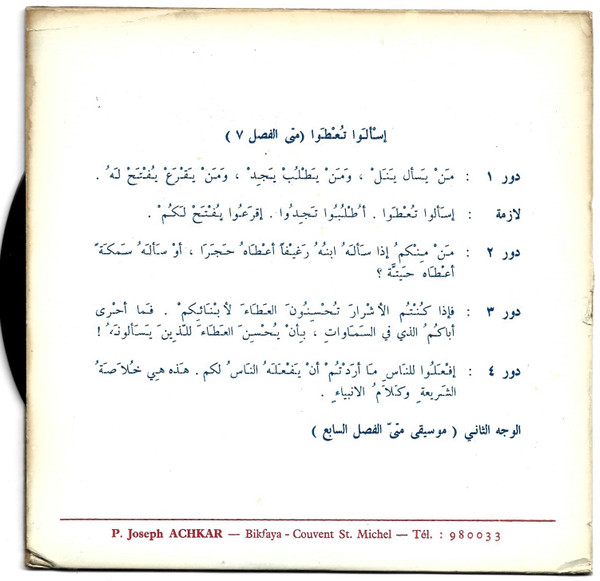 إسْألَوا تُعْطَوا (متى الفصل ٧)
دور ١ : مَنْ يَسأل يَنَلْ ، ومَنْ يَطْلُبْ يَجِدْ ، ومَنْ يَقْرَعْ يُفْتَحْ لَهُ .
لازمة : إسألوا تُعْطَوا . أُطْلُبُوا تَجِدُوا . إقرَعُوا يُفْتَحْ لَكُمْ .
دور ٢ : مَنْ مِنْكُم إذا سَألَهُ ابنُهُ رَغيْفاً أعْطَاهُ حَجَرَا ، أوْ سَألَهُ سَمَكَةً
أعْطَاه حَيَّةً ؟
دور ٣ : فإذا كُنْتُم الأشْرارَ تُحْسِنُونَ العَطَاءَ لأبْنَائِكِمْ . فَمَا أحْرى
أباكُمُ الذي في السَمَاوَاتِ ، بِأنْ يُحْسِنَ العَطَاءَ لِلَّذِينَ يَسألونَهُ !
دور ٤ : إفْعَلُوا للنَاسِ مَا أرَدْتُمْ أنْ يَفْعَلَهُ النَاسُ لكم . هَذه هِي خُلاَصَةُ
الشَرِيعةِ وكَلاَمُ الانبياءِ .
الوجه الثاني ( موسيقى متىّ الفصل السابع )
P. Joseph ACHKAR — Bikfaya - Couvent St. Michel — Tél. : 980033